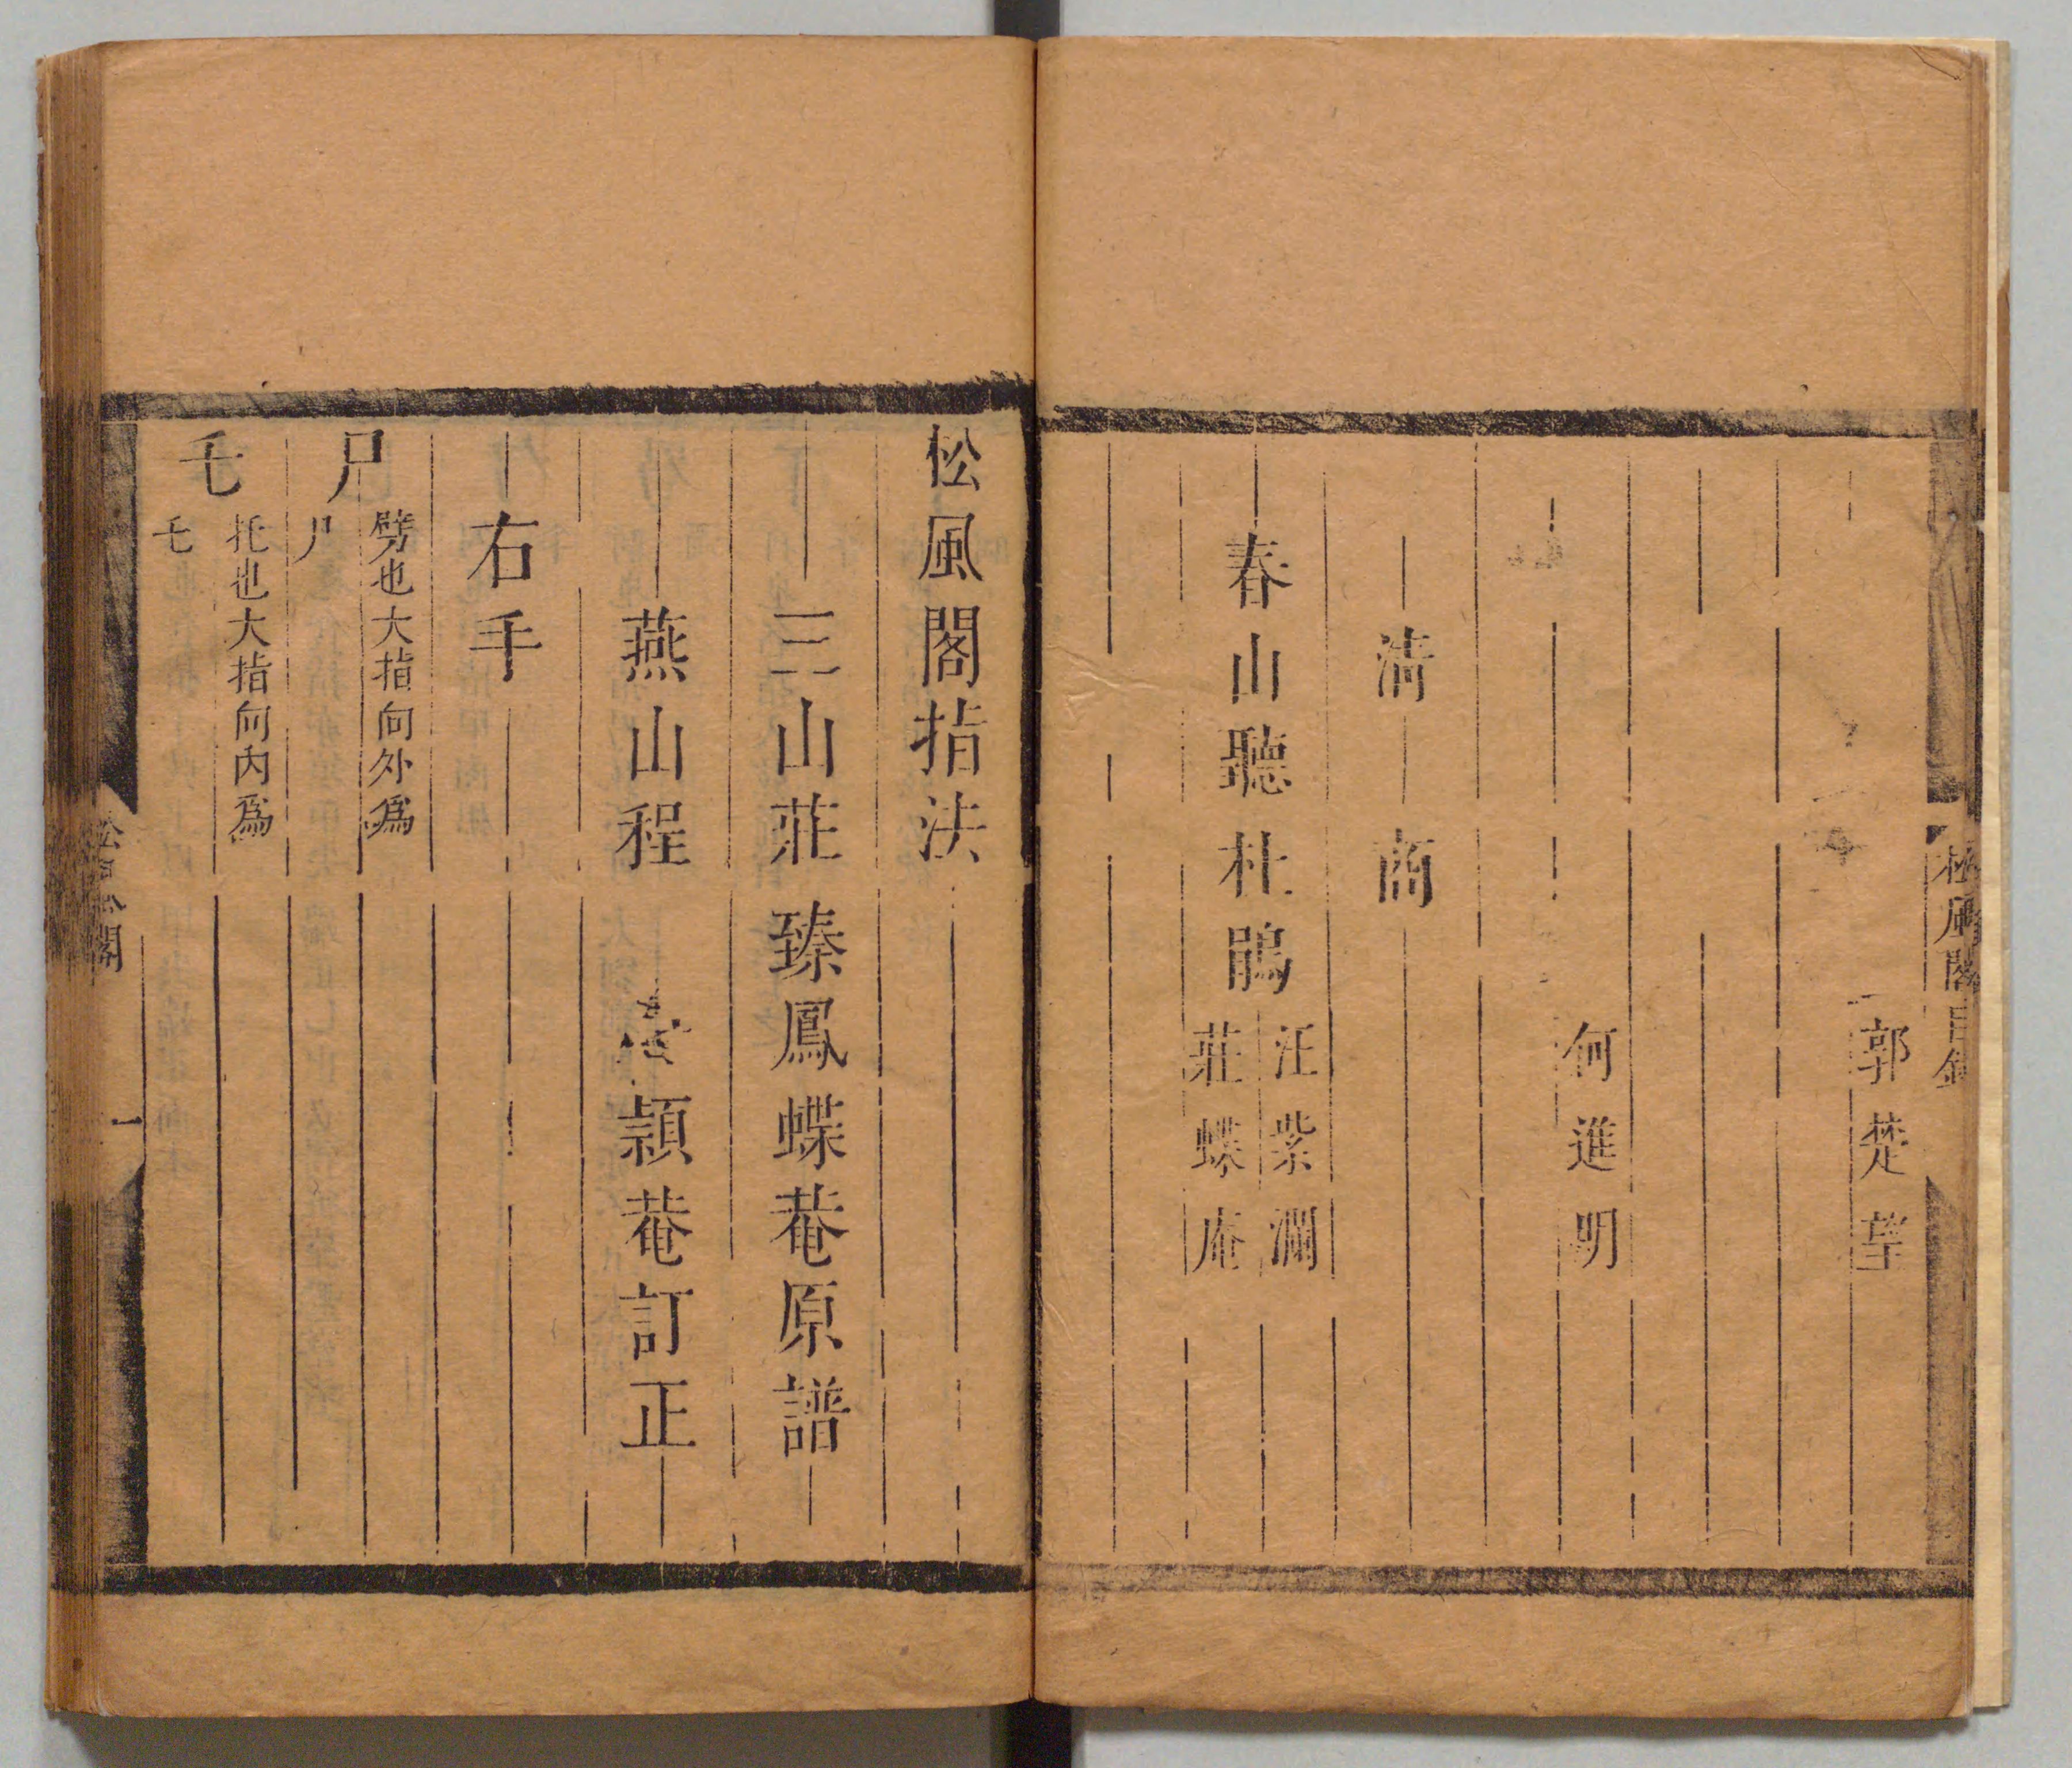 松風閣目錄
郭楚望
何進明
清商
春山聽杜鵑
汪紫瀾
莊蝶庵
松風閣指法
三山莊臻鳳蝶菴原譜
燕山程 頴菴訂正
右手
尸
劈也大指向外爲
尸
乇
托也大指向内爲
乇
閣
一